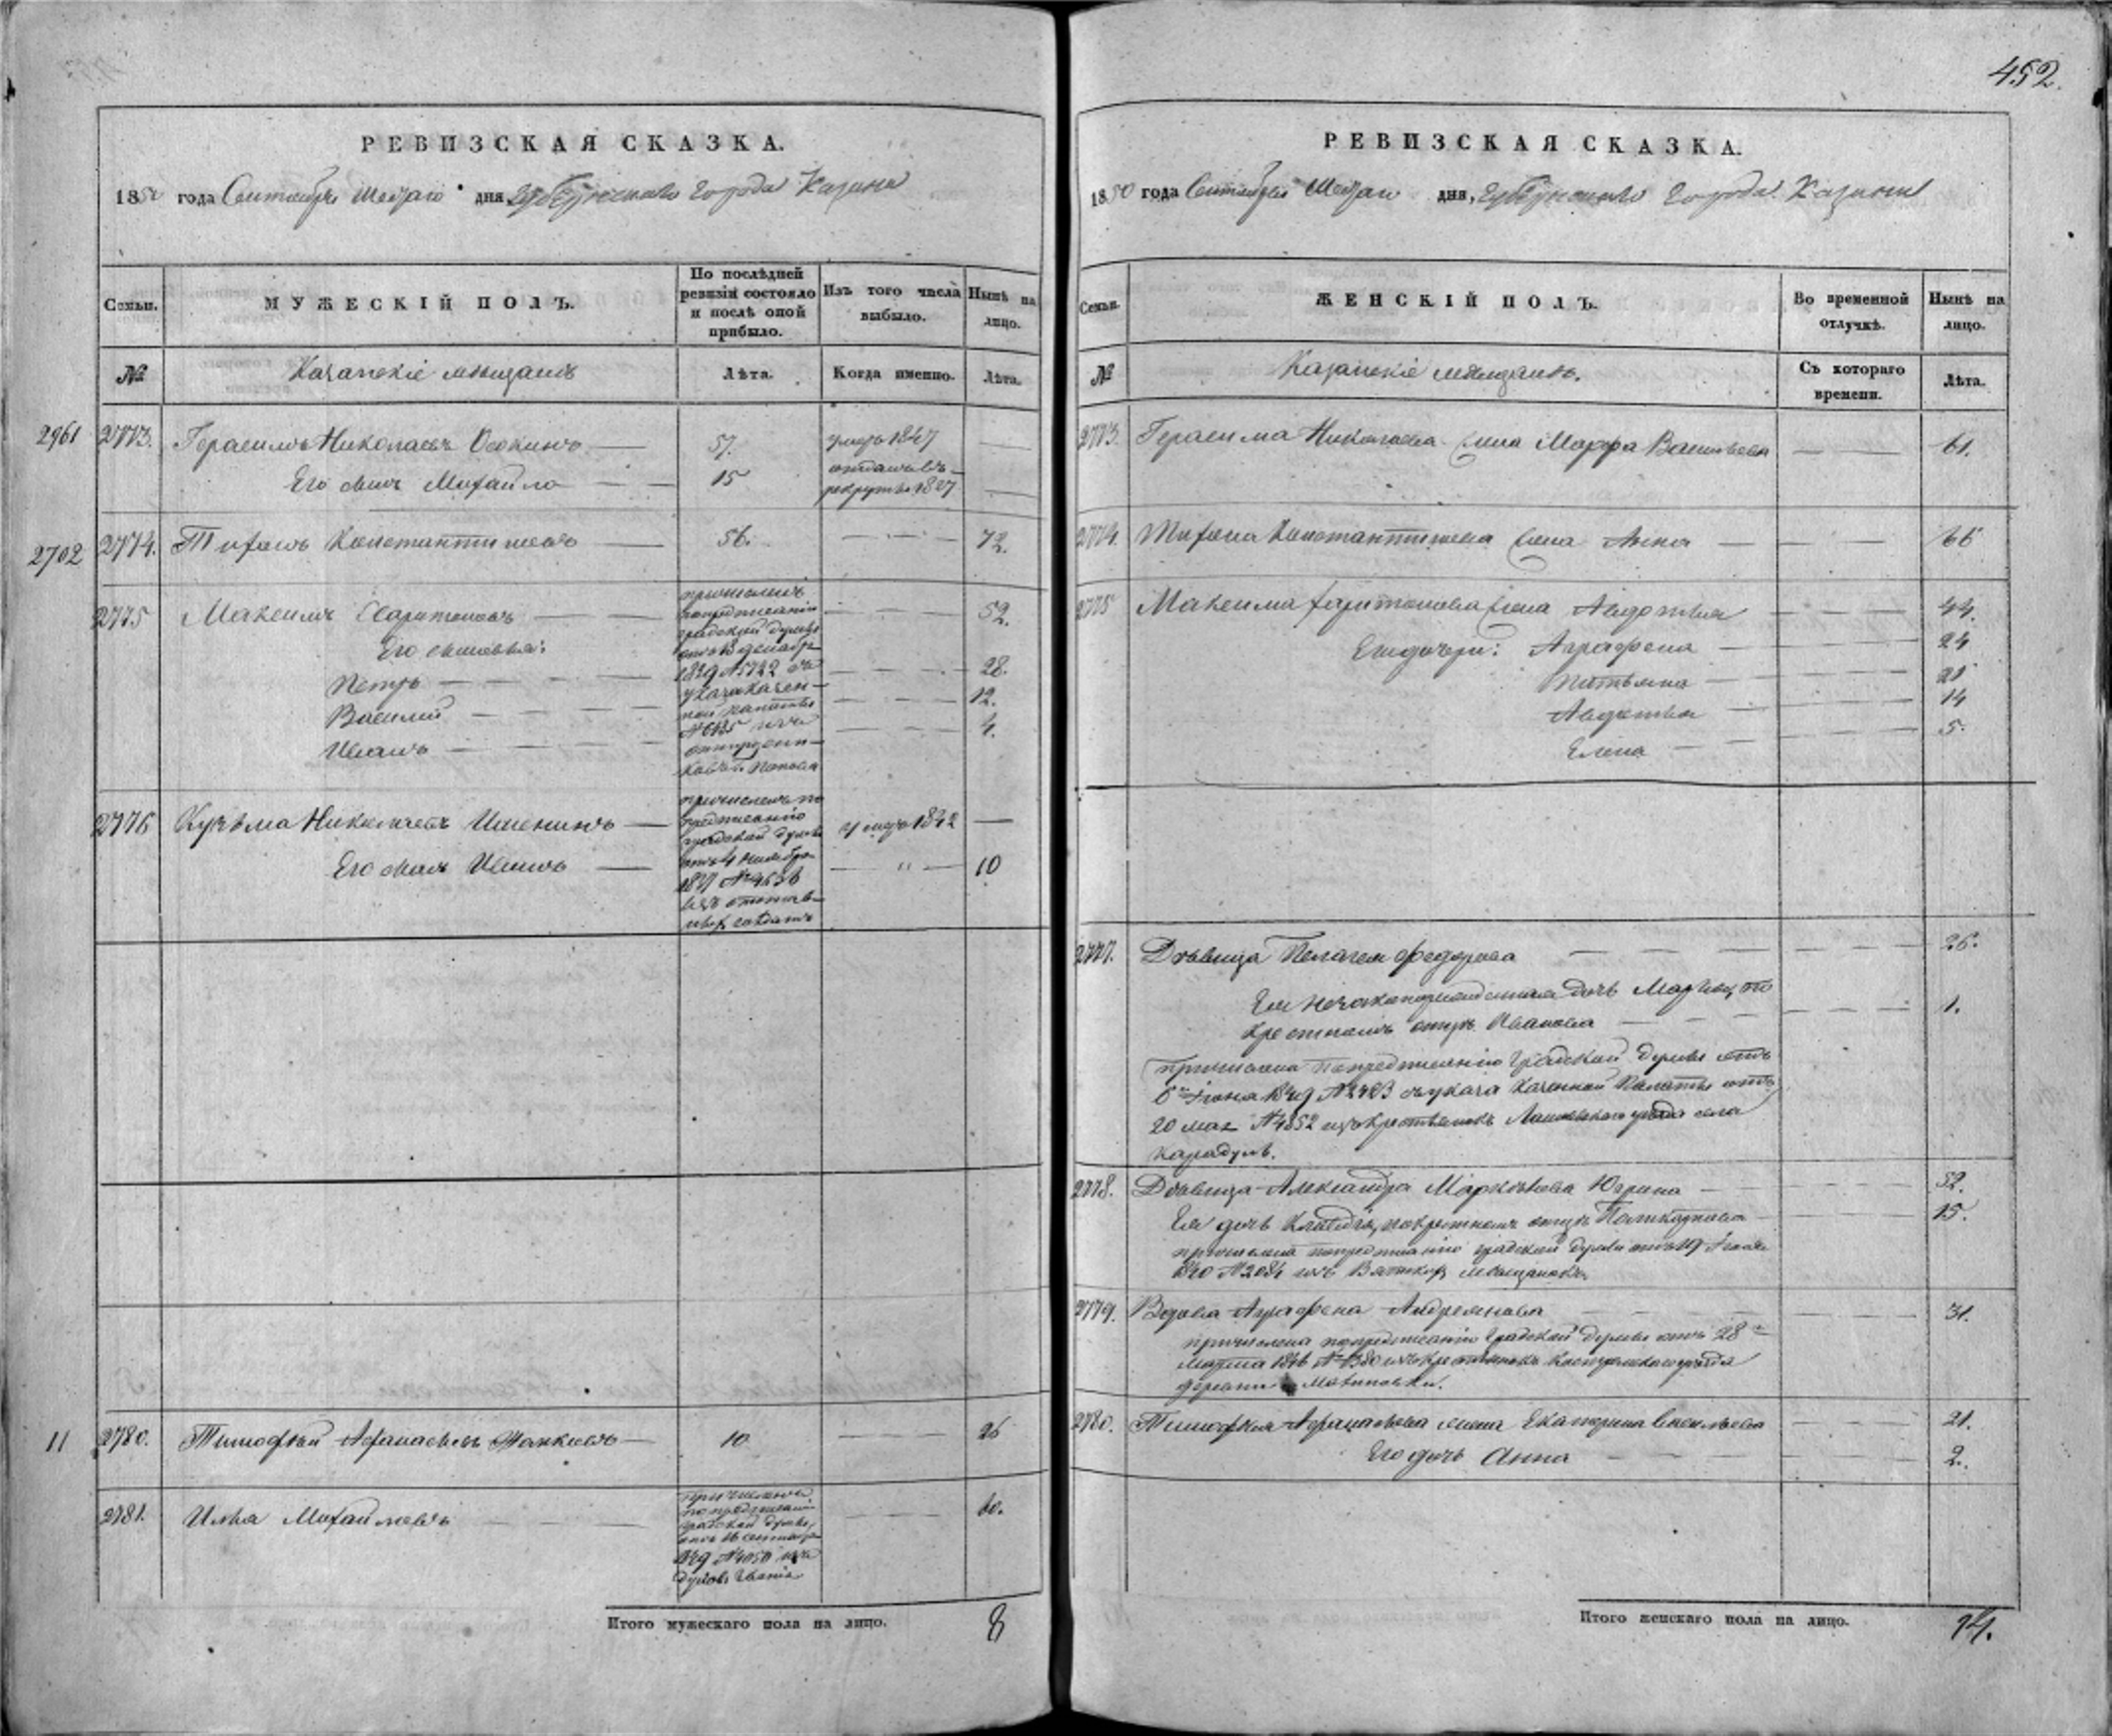 452.
РЕВИЗСКАЯ СКАЗКА.
1850 года Сентября дня, губернского города Казани
Семьи. МУЖЕСКІЙ ПОЛЪ. По послѣдней ревизіи состояло и послѣ оной прибыло. Изъ того числа выбыло. Нынѣ на лицо.
№ Казанскіе мещане Лѣта. Когда именно. Лѣта.
2961 2773. Герасимъ Николаевъ Осокинъ — 57. умеръ 1847 —
Его сынъ Михайло — — 15 отданъ въ рекруты 1837 —
2702 2774. Тифонъ Константиновъ — 56. — 72.
2775 Максимъ Харитоновъ — 52.
Его сыновья:
Петръ — — 28.
Василий — — 12.
Иванъ — — 4.
причисленъ
по предписанію
градской думы
декабря
1849 № 5722
указа казен-
ной палаты
2776 Кузьма Николаевъ — умеръ 1842 —
Его сынъ Иванъ — — " — 10
причисленъ по
предписанію
градской думы
№ 4636
солдатъ
11 2780. Тимофей Афанасьевъ — 10 — 26
2781. Илья Михайловъ — — 60.
причисленъ
по предписанію
градской думы
отъ 16 сентяб
1849 № 4050 изъ
духов. званія
Итого мужескаго пола на лицо. 8
РЕВИЗСКАЯ СКАЗКА.
1850 года Сентября дня, губернского города Казани
Семьи. ЖЕНСКІЙ ПОЛЪ. Во временной отлучкѣ. Нынѣ на лицо.
№ Казанскіе мещане. Съ котораго времени. Лѣта.
2773. Герасима Николаева жена Марфа Васильева — — 61.
2774. Тифона Константинова жена Анна — — 66
2775 Максима Харитонова жена Авдотья — 44.
Его дочери: Аграфена — 24
Татьяна — 21
Авдотья — 14
Елена — 5.
2777. Дѣвица Пелагея Федорова — 26.
Ея незаконорожденная дочь по
крестномъ отцѣ Иванова — 1.
причислена по предписанію Градской Думы отъ
6го Июня 1849 № 2423 указа Казенной Палаты отъ
20 мая № 4852 изъ крестьянокъ Лаишевского уезда села
Карадули.
2778. Дѣвица Александра Юрина — 52.
Ея дочь Клавдія, по крестномъ отцѣ Поликарпова — 15.
причислена по предписанію градской думы отъ 19
1840 № 2084 изъ Вятскихъ мещанокъ
2779. Вдова Аграфена Андреянова — 31.
причислена по предписанію Градской Думы отъ 28го
Марта 1846 № 1380 изъ крестьянокъ уезда
деревни
2780. Тимофея Афанасьева жена Екатерина — 21.
Его дочь Анна — 2.
Итого женскаго пола на лицо. 14.